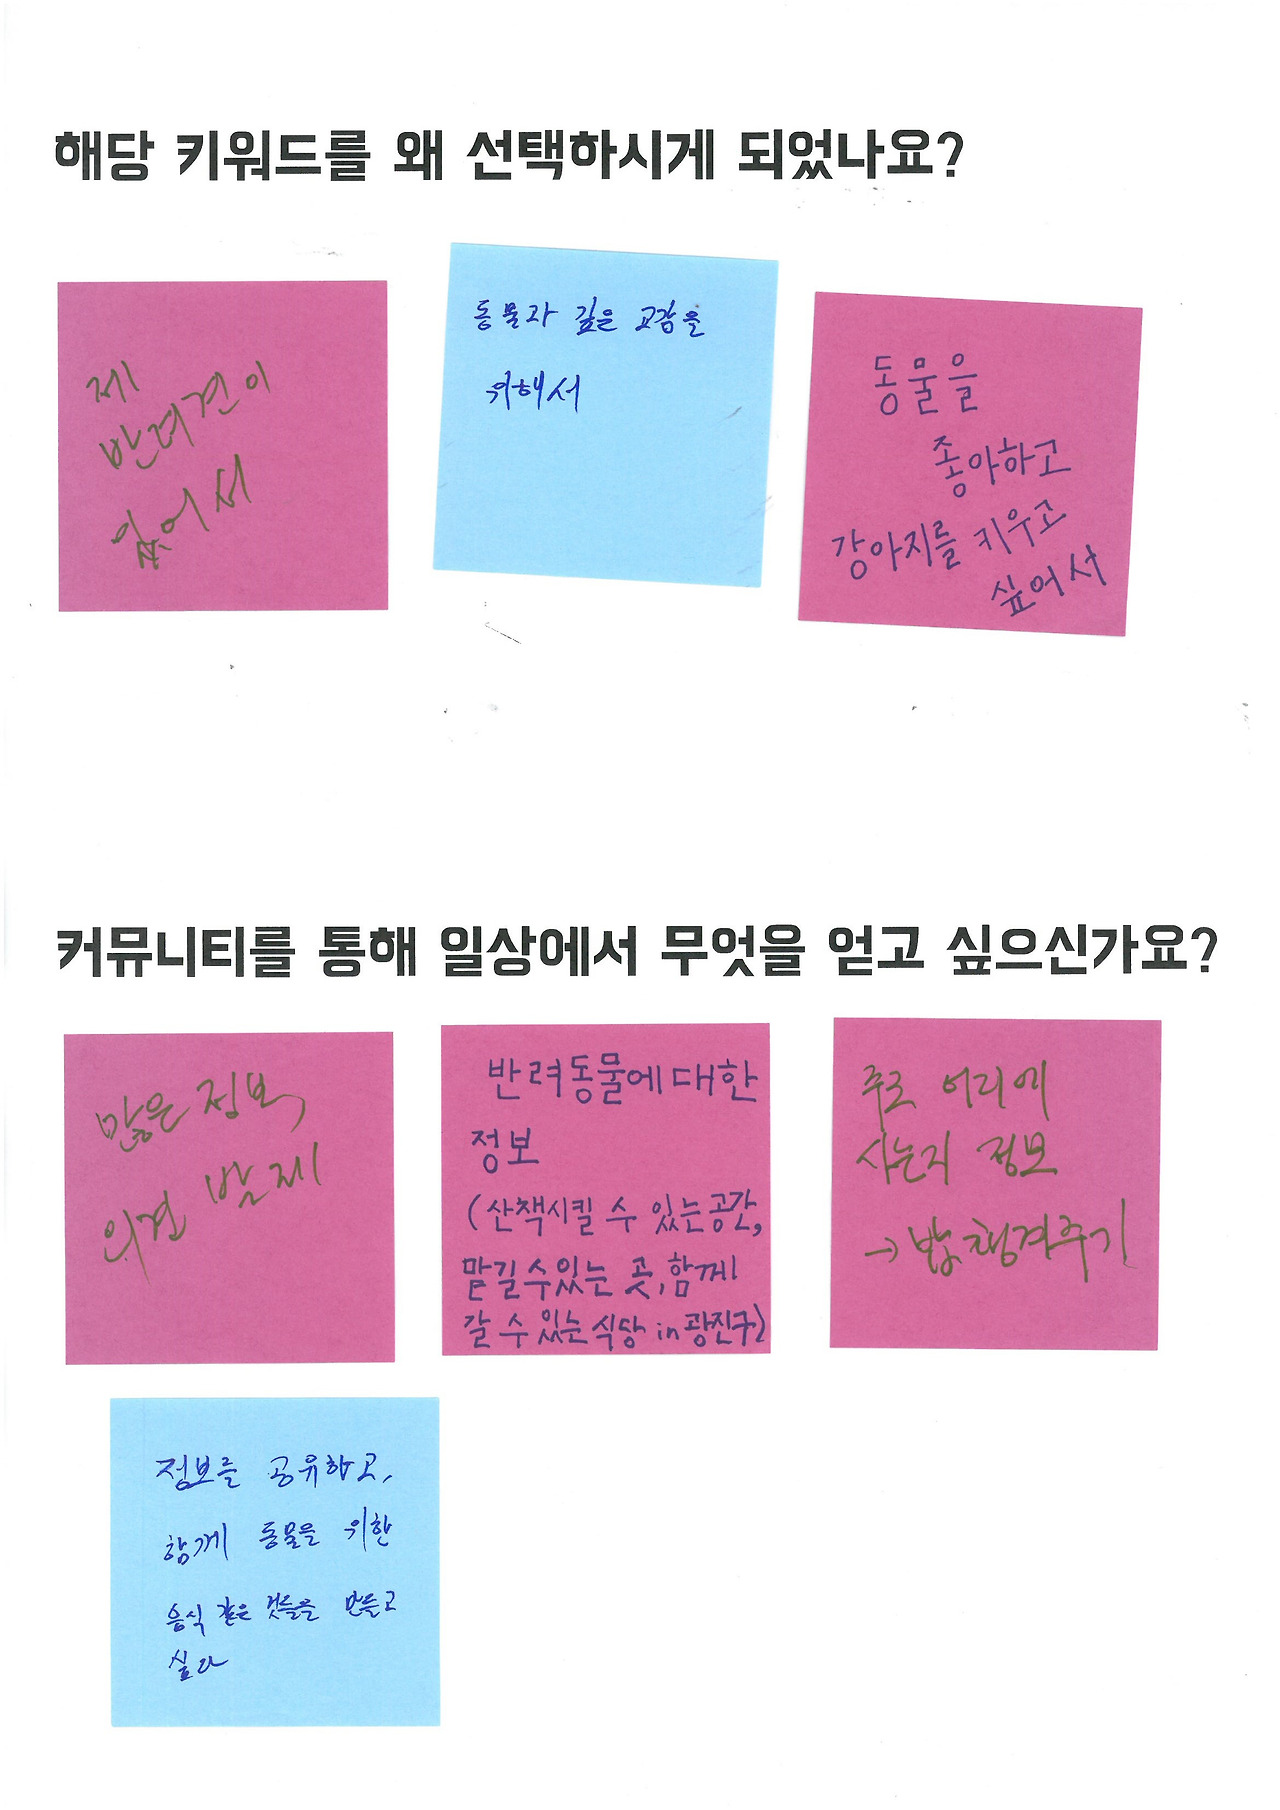 해당 키워드를 왜 선택하시게 되었나요?
제
반려견이
있어서
동물과 깊은 교감을
위해서
동물을
좋아하고
강아지를 키우고
싶어서
커뮤니티를 통해 일상에서 무엇을 얻고 싶으신가요?
많은 정보,
의견 발제
반려동물에 대한
정보
(산책시킬 수 있는 공간,
맡길 수 있는 곳, 함께
갈 수 있는 식당 in 광진구)
주로 어디에
사는지 정보
→ 밥 챙겨주기
정보를 공유하고,
함께 동물을 위한
음식 같은 것들을 만들고
싶다